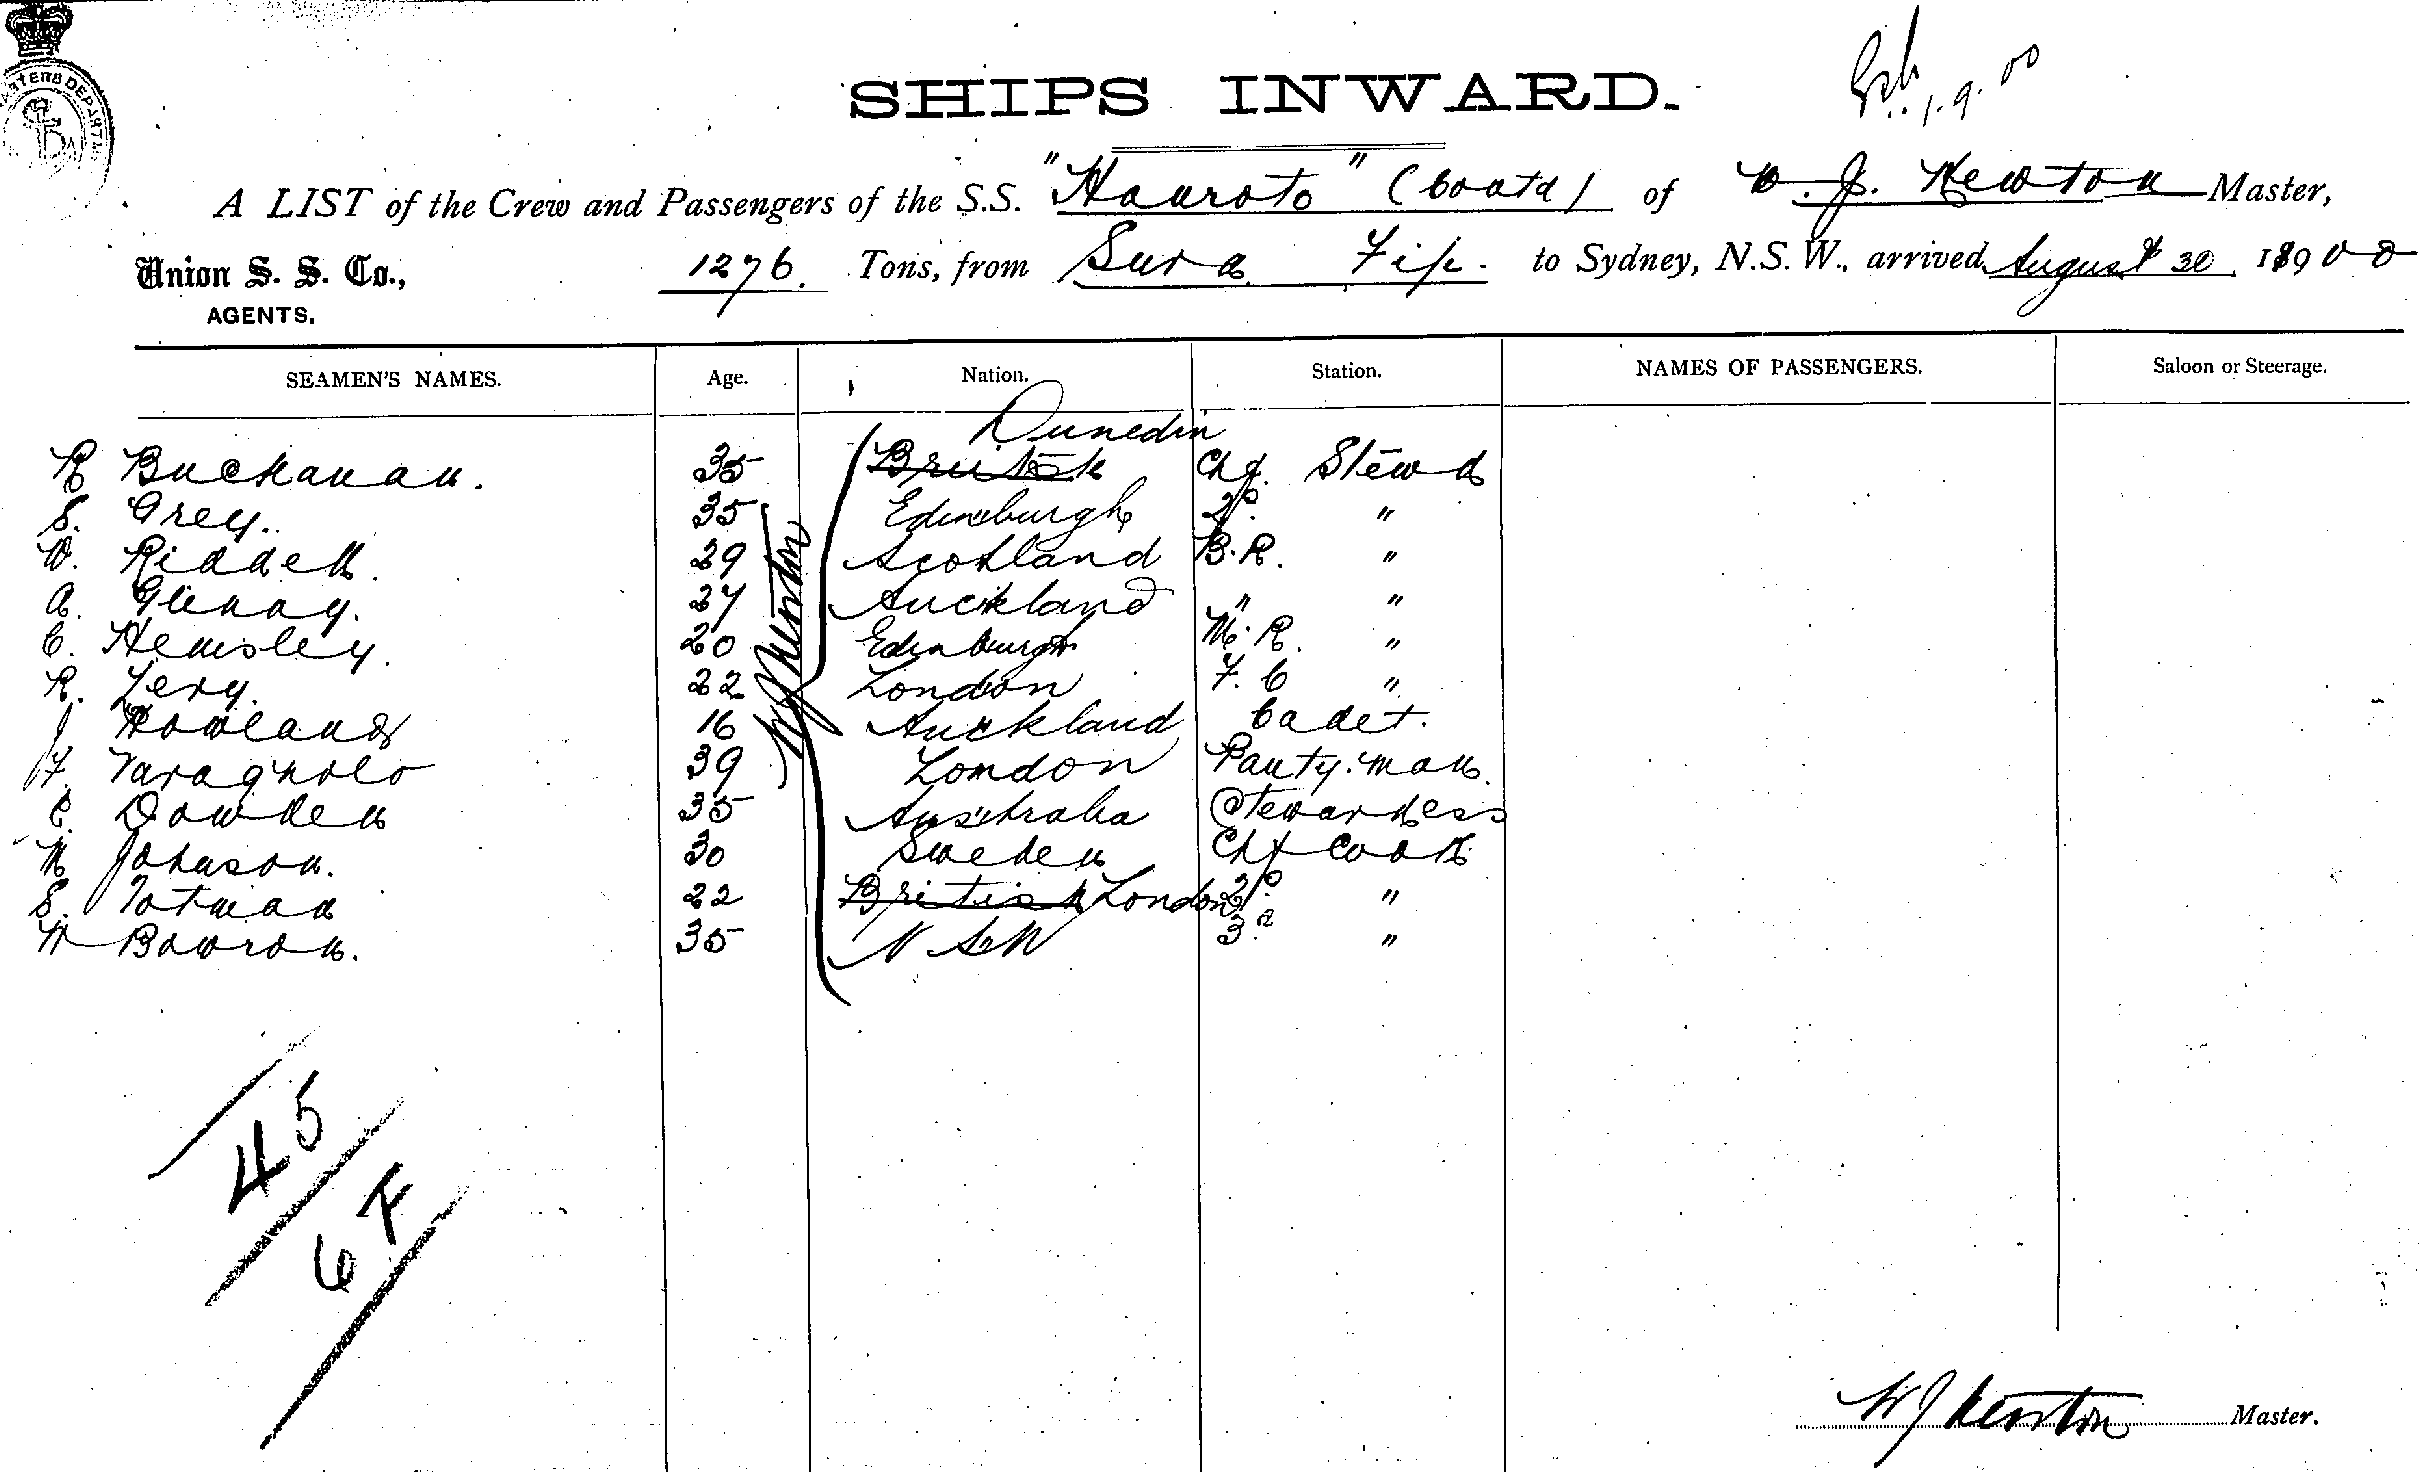 SHIPS INWARD.
1.9.00
A LIST of the Crew and Passengers of the S.S. "Hauroto" (Contd) of W. J. Newton Master,
Union S. S. Co., 1276. Tons, from Suva Fiji. to Sydney, N.S.W., arrived August 30 1900
AGENTS.
SEAMEN'S NAMES. Age. Nation. Station. NAMES OF PASSENGERS. Saloon or Steerage.
Dunedin
R Buchanan. 35 British Chf. Stewd
S. Grey. 35 Edinburgh 2d. "
W. Riddell. 29 Scotland B.R. "
A. Glenny. 27 Auckland " "
C. Hemsley. 20 Edinburgh M.R. "
R. Levy. 22 London F.C "
J Rowland 16 Auckland Cadet.
F. 39 London Panty.man.
C. Dowden 35 Australia Stewardess
N Johnson. 30 Sweden Chf Cook
S. Totman 22 British London 2d. "
W Bowron. 35 N S W 3d "
WJ Newton
45
6 F
WJ Newton Master.